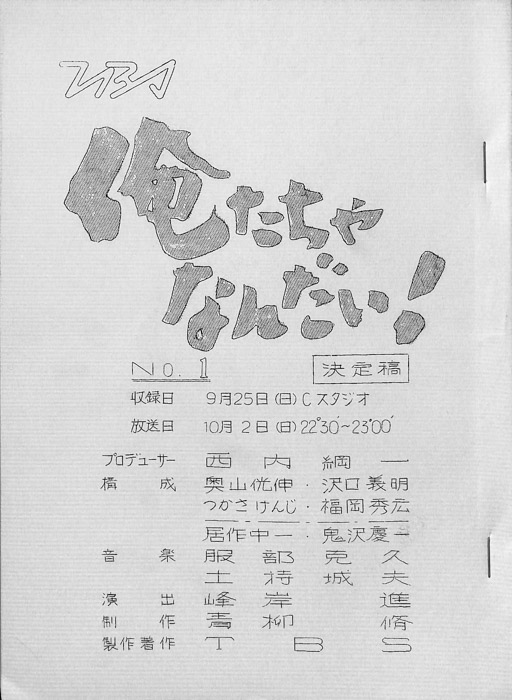 TBS
俺たちゃ
なんだい!
NO. 1 決定稿
収録日 9月25日(日)Cスタジオ
放送日 10月2日(日)22°30′~23°00′
プロデューサー 西内綱一
構成 奥山侊伸・沢口義明
つかさけんじ・福岡秀広
居作中一・鬼沢慶一
音楽 服部克久
土持城夫
演出 峰岸進
制作 青柳脩
製作著作 TBS